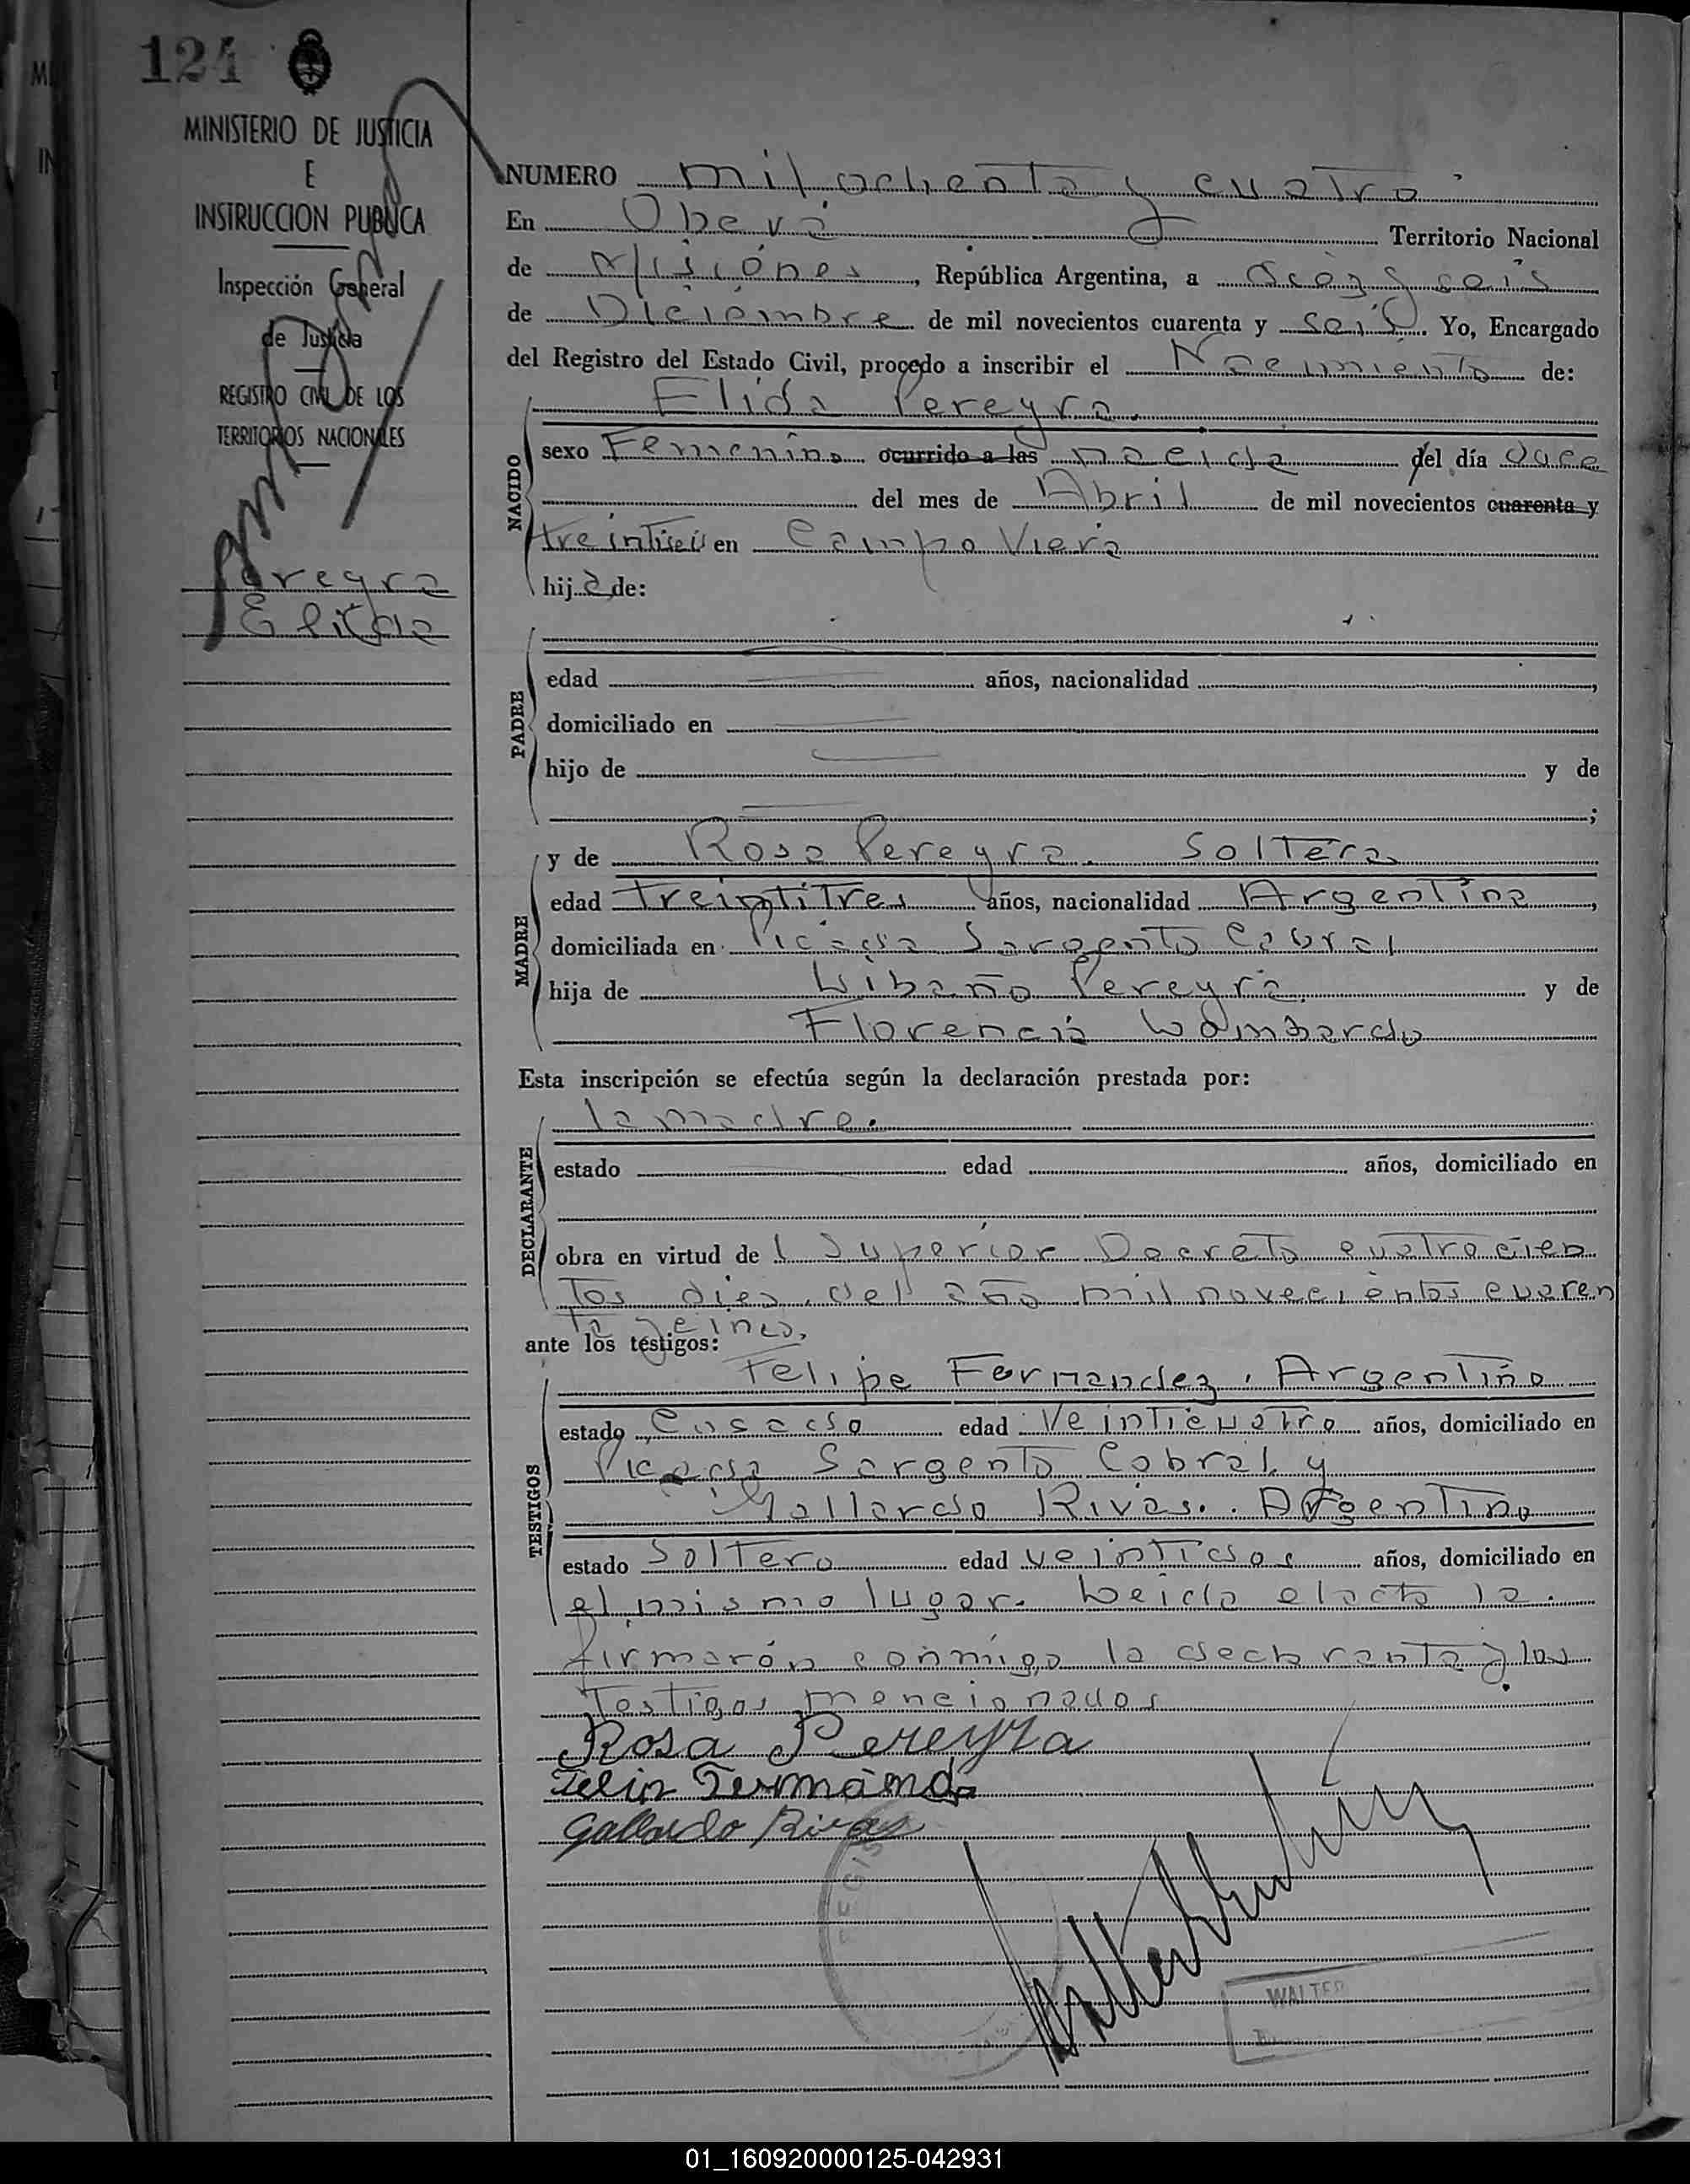 124
MINISTERIO DE JUSTICIA
E
INSTRUCCION PUBLICA
Inspección General
de Justicia
REGISTRO CIVIL DE LOS
TERRITORIOS NACIONALES
Pereyra
Elida
NUMERO mil ochenta y cuatro
En Oberá Territorio Nacional
de Misiones, República Argentina, a diez y seis
de Diciembre de mil novecientos cuarenta y seis. Yo, Encargado
del Registro del Estado Civil, procedo a inscribir el Nacimiento de:
Elida Pereyra.
NACIDO
sexo Femenino ocurrido a las nacida del día doce
del mes de Abril de mil novecientos cuarenta y
treintiseis en Campo Viera
hija de:
PADRE
edad años, nacionalidad ,
domiciliado en
hijo de y de
;
MADRE
y de Rosa Pereyra. Soltera
edad treintitres años, nacionalidad Argentina,
domiciliada en Picada Sargento Cabral
hija de Libaño Pereyra. y de
Florencia Lombardo
Esta inscripción se efectúa según la declaración prestada por:
DECLARANTE
la madre.
estado edad años, domiciliado en
obra en virtud de l Superior Decreto cuatrocien
tos diez del año mil novecientos cuaren
ta y cinco.
ante los testigos:
TESTIGOS
Felipe Fernandez. Argentino
estado Casado edad Veinticuatro años, domiciliado en
Picada Sargento Cabral y
Gallardo Rivas. Argentino
estado Soltero edad veintidos años, domiciliado en
el mismo lugar. Leida el acta la
firmarón conmigo la declarante y los
testigos mencionados
Rosa Pereyra
Felip Fernánd
Gallardo Rivas
REGIS
WALTER
01_160920000125-042931